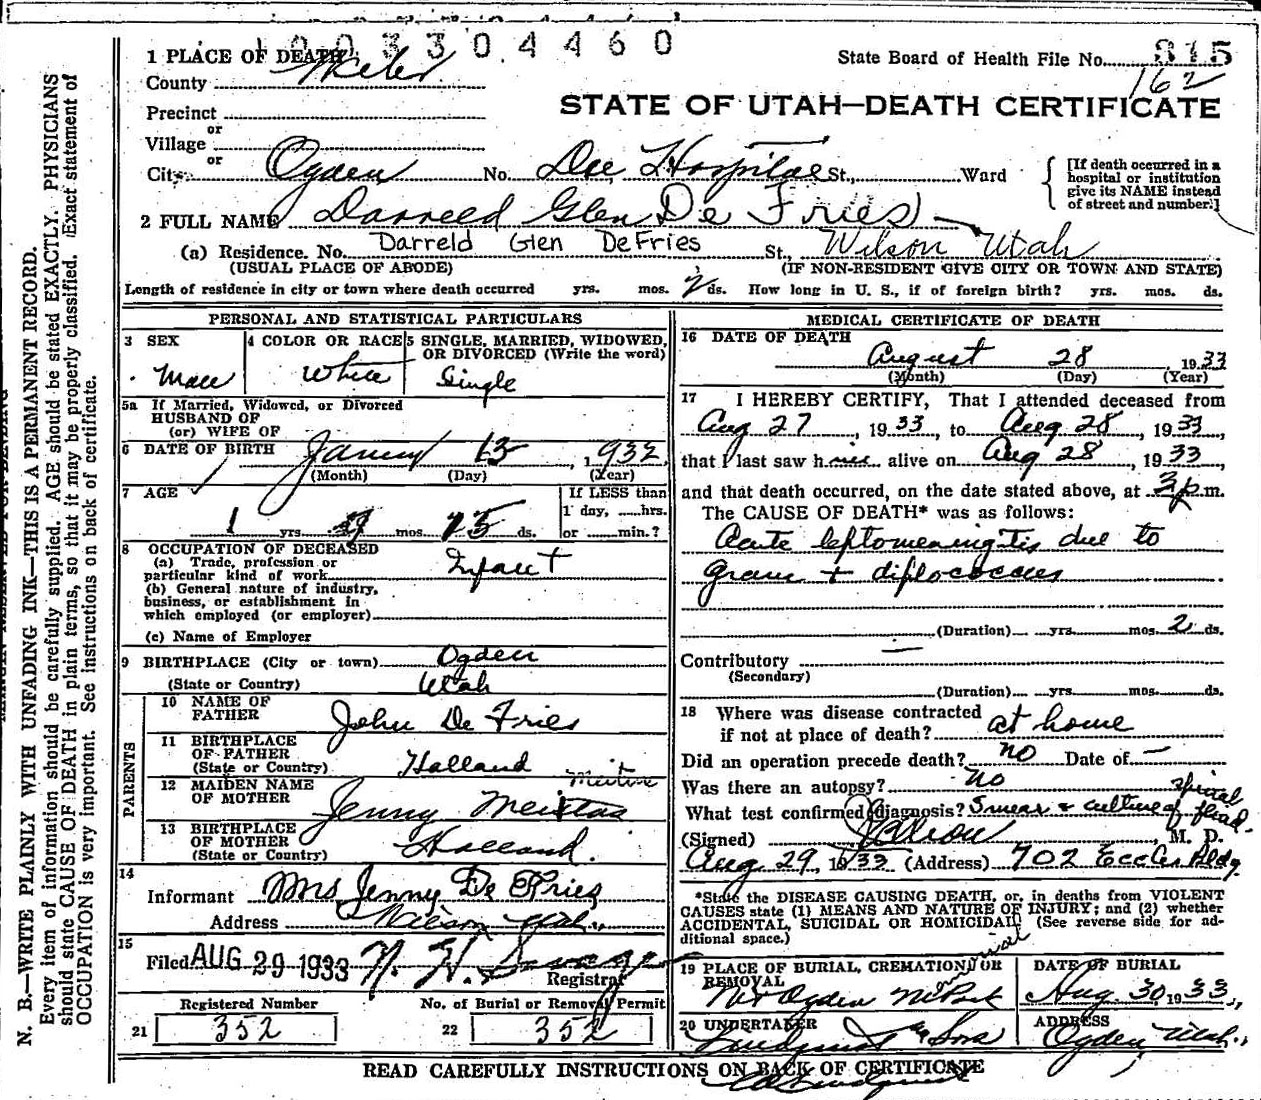 1003304460
1 PLACE OF DEATH
State Board of Health File No. 815
162
County Weber
STATE OF UTAH—DEATH CERTIFICATE
Precinct
or
Village
or
City Ogden No. Dee Hospital St., Ward
[If death occurred in a hospital or institution give its NAME instead of street and number.]
2 FULL NAME Darreld Glen De Fries
(a) Residence. No. Darreld Glen DeFries St., Wilson Utah
(USUAL PLACE OF ABODE) (IF NON-RESIDENT GIVE CITY OR TOWN AND STATE)
Length of residence in city or town where death occurred yrs. mos. 2 ds. How long in U. S., if of foreign birth? yrs. mos. ds.
PERSONAL AND STATISTICAL PARTICULARS
3 SEX
Male
4 COLOR OR RACE
White
5 SINGLE, MARRIED, WIDOWED, OR DIVORCED (Write the word)
Single
5a If Married, Widowed, or Divorced
HUSBAND OF
(or) WIFE OF
6 DATE OF BIRTH
13, 1932
(Month) (Day) (Year)
7 AGE
1 yrs. mos. 15 ds.
If LESS than
1 day, hrs.
or min.?
8 OCCUPATION OF DECEASED
(a) Trade, profession or
particular kind of work Infant
(b) General nature of industry,
business, or establishment in
which employed (or employer)
(c) Name of Employer
9 BIRTHPLACE (City or town) Ogden
(State or Country) Utah
PARENTS
10 NAME OF FATHER John De Fries
11 BIRTHPLACE OF FATHER
(State or Country) Holland
12 MAIDEN NAME OF MOTHER Jenny
13 BIRTHPLACE OF MOTHER
(State or Country) Holland.
14
Informant Mrs Jenny De Fries
Address Wilson Utah.
15
Filed AUG 29 1933
Registrar
Registered Number
No. of Burial or Removal Permit
21 352 22 352
MEDICAL CERTIFICATE OF DEATH
16 DATE OF DEATH
August 28 1933
(Month) (Day) (Year)
17 I HEREBY CERTIFY, That I attended deceased from
Aug 27, 1933, to Aug 28, 1933,
that I last saw him alive on Aug 28, 1933,
and that death occurred, on the date stated above, at 3 p.m.
The CAUSE OF DEATH* was as follows:
Acute leptomeningitis due to
gram + diplococcus
(Duration) yrs. mos. 2 ds.
Contributory —
(Secondary)
(Duration) yrs. mos. ds.
18 Where was disease contracted
if not at place of death? at home
Did an operation precede death? no Date of —
Was there an autopsy? no
What test confirmed diagnosis? Smear & culture of spinal fluid.
(Signed) M. D.
Aug 29, 1933 (Address) 702 Eccles Bldg
*State the DISEASE CAUSING DEATH, or, in deaths from VIOLENT
CAUSES state (1) MEANS AND NATURE OF INJURY; and (2) whether
ACCIDENTAL, SUICIDAL OR HOMICIDAL. (See reverse side for ad-
ditional space.)
19 PLACE OF BURIAL, CREMATION, OR
REMOVAL
DATE OF BURIAL
Aug. 30, 1933,
20 UNDERTAKER
& Sons
ADDRESS
Ogden Utah.
READ CAREFULLY INSTRUCTIONS ON BACK OF CERTIFICATE
N. B.—WRITE PLAINLY WITH UNFADING INK—THIS IS A PERMANENT RECORD.
Every item of information should be carefully supplied. AGE should be stated EXACTLY. PHYSICIANS
should state CAUSE OF DEATH in plain terms, so that it may be properly classified. Exact statement of
OCCUPATION is very important. See instructions on back of certificate.